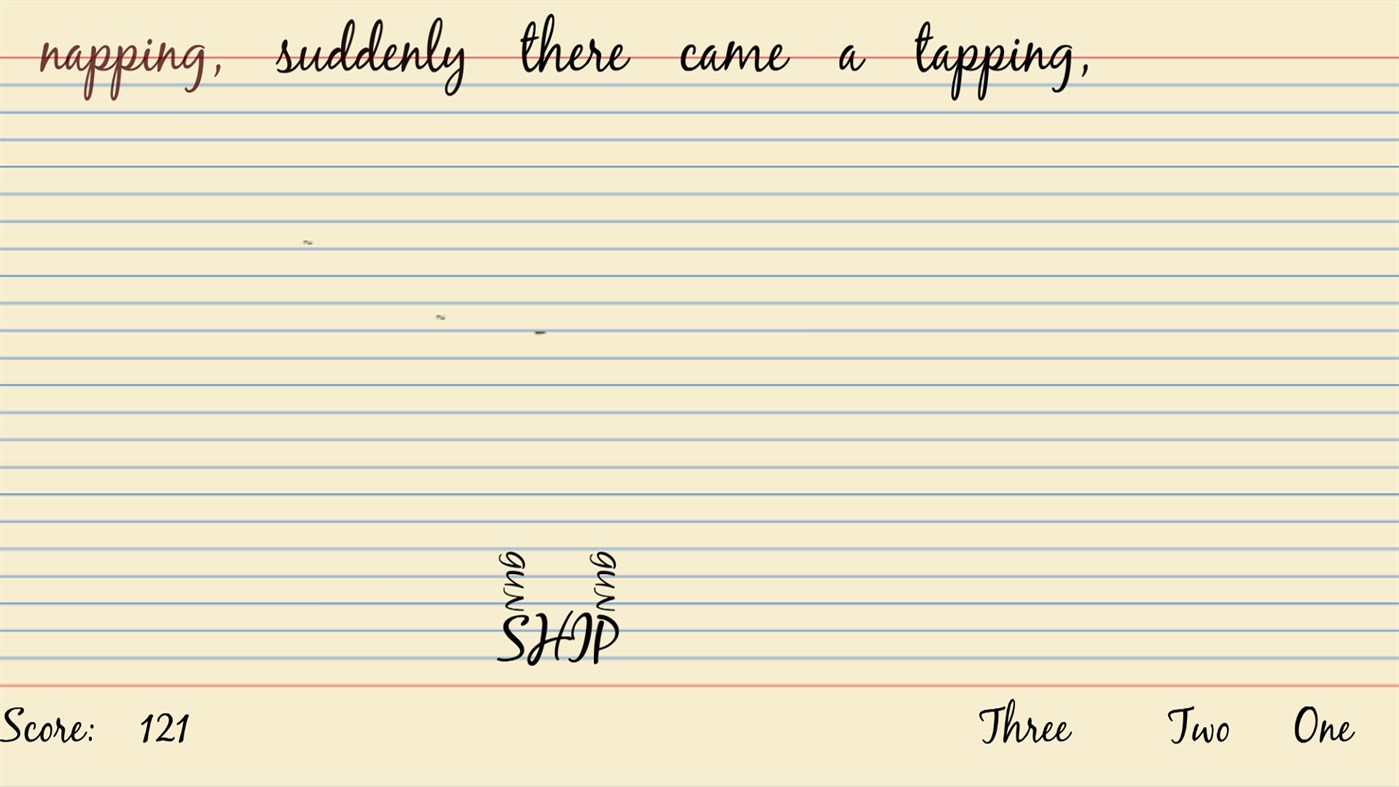 napping, suddenly there came a tapping,
~
~
-
gun gun
SHIP
Score: 121 Three Two One